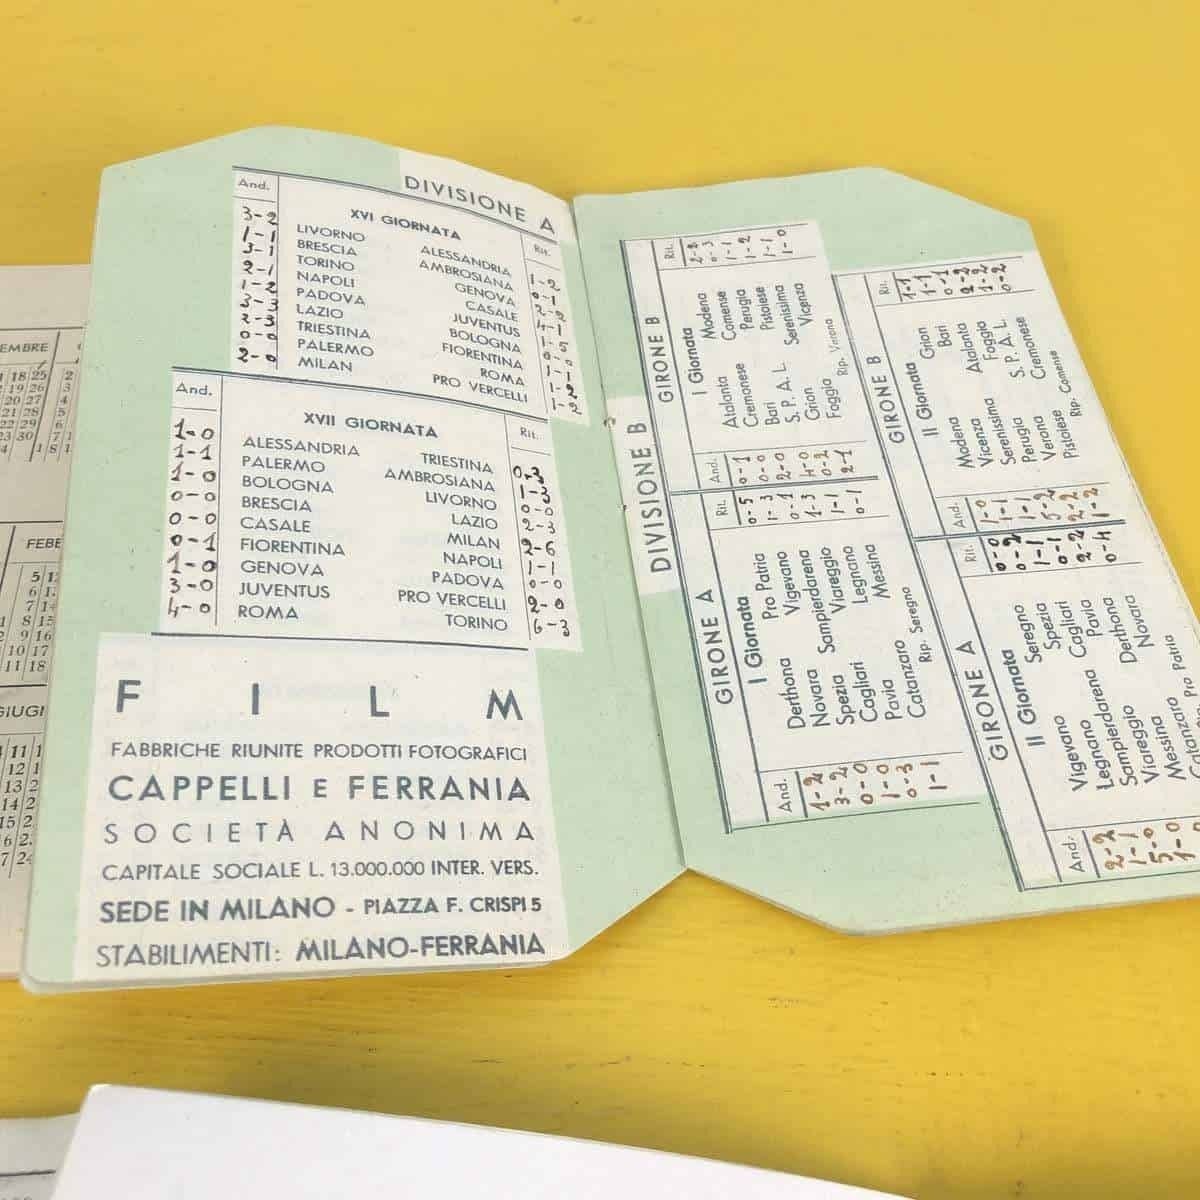 DIVISIONE A
And.
XVI GIORNATA
Rit.
3-2 LIVORNO ALESSANDRIA 1-2
1-1 BRESCIA AMBROSIANA 0-1
3-1 TORINO GENOVA 2-2
2-1 NAPOLI CASALE 4-1
1-2 PADOVA JUVENTUS 1-5
3-3 LAZIO BOLOGNA 0-0
TRIESTINA FIORENTINA
0-0 PALERMO ROMA
2-0 MILAN PRO VERCELLI
And.
XVII GIORNATA
Rit.
1-0 ALESSANDRIA TRIESTINA 0-3
1-1 PALERMO AMBROSIANA 1-3
1-0 BOLOGNA LIVORNO 0-0
0-0 BRESCIA LAZIO 2-3
0-0 CASALE MILAN 2-6
0-1 FIORENTINA NAPOLI 1-1
1-0 GENOVA PADOVA 0-0
3-0 JUVENTUS PRO VERCELLI 2-0
4-0 ROMA TORINO 6-3
FILM
FABBRICHE RIUNITE PRODOTTI FOTOGRAFICI
CAPPELLI E FERRANIA
SOCIETÀ ANONIMA
CAPITALE SOCIALE L. 13.000.000 INTER. VERS.
SEDE IN MILANO - PIAZZA F. CRISPI 5
STABILIMENTI: MILANO-FERRANIA
DIVISIONE B
GIRONE A
And.
I Giornata
Rit.
1-2 Derthona Pro Patria 0-5
3-2 Novara Vigevano 1-3
0-0 Spezia Sampierdarena 0-1
1-0 Cagliari Viareggio 1-3
0-3 Pavia Legnano 1-1
1-1 Catanzaro Messina 0-1
Rip. Seregno
GIRONE B
And.
I Giornata
Rit.
0-1 Atalanta Modena 2-2
0-0 Cremonese Comense 0-3
2-0 Bari Perugia 1-1
4-0 S. P. A. L. Pistoiese 1-2
0-2 Grion Serenissima 1-1
2-1 Foggia Vicenza 1-0
Rip. Verona
GIRONE A
And.
II Giornata
Rit.
2-2 Vigevano Seregno 0-0
1-1 Legnano Spezia 0-2
5-0 Sampierdarena Cagliari 1-1
Viareggio Pavia 0-1
Messina Derthona 2-2
Catanzaro Novara 0-4
Pro Patria
GIRONE B
And.
II Giornata
Rit.
1-0 Modena Grion 1-1
1-1 Vicenza Bari 1-1
1-1 Serenissima Atalanta 0-1
5-2 Perugia Foggia 2-2
2-2 Verona S. P. A. L. 1-2
1-2 Pistoiese Cremonese 0-2
Rip. Comense
EMBRE
18 25
19 26
20 27
21 28
22 29
23 30
FEBB
5
6
7
8 15
9 16
10 17
11 18
GIUGI
11
12
13
14
15